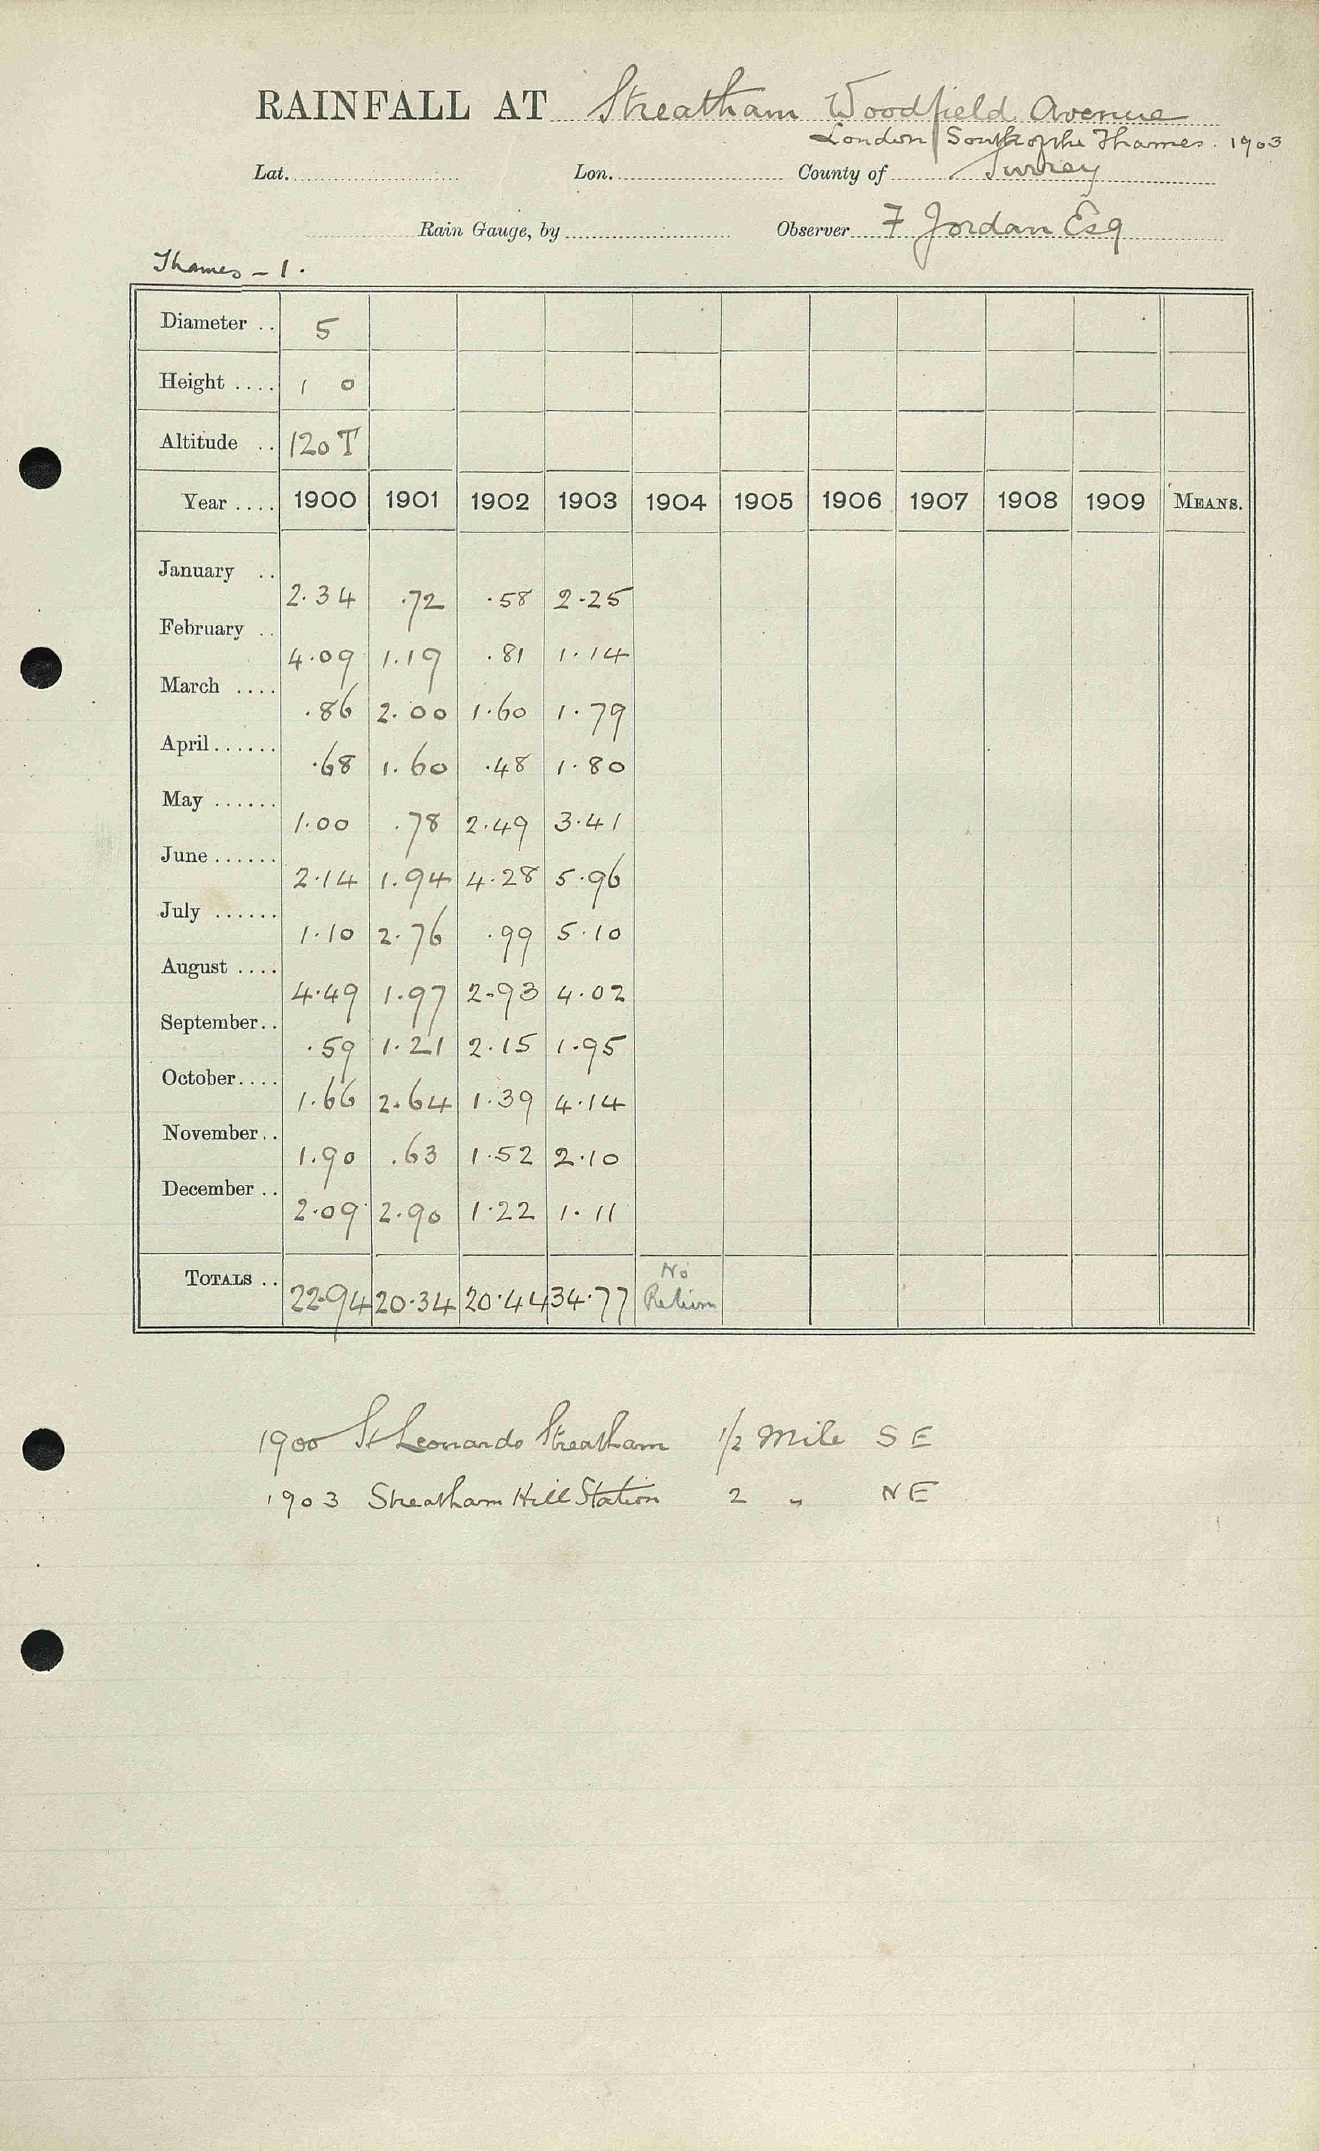 RAINFALL AT Streatham Woodfield Avenue
London South of the Thames. 1903
Lat. Lon. County of Surrey
Rain Gauge, by Observer F Jordan Esq
Thames - 1.
Diameter .. 5
Height .... 1 0
Altitude .. 120 T
Year .... 1900 1901 1902 1903 1904 1905 1906 1907 1908 1909 MEANS.
January .. 2.34 .72 .58 2.25
February .. 4.09 1.19 .81 1.14
March .... .86 2.00 1.60 1.79
April...... .68 1.60 .48 1.80
May ...... 1.00 .78 2.49 3.41
June...... 2.14 1.94 4.28 5.96
July ...... 1.10 2.76 .99 5.10
August .... 4.49 1.97 2.93 4.02
September.. .59 1.21 2.15 1.95
October.... 1.66 2.64 1.39 4.14
November.. 1.90 .63 1.52 2.10
December .. 2.09 2.90 1.22 1.11
TOTALS .. 22.94 20.34 20.44 34.77 No Return
1900 St Leonards Streatham 1/2 Mile S E
1903 Streatham Hill Station 2 " N E